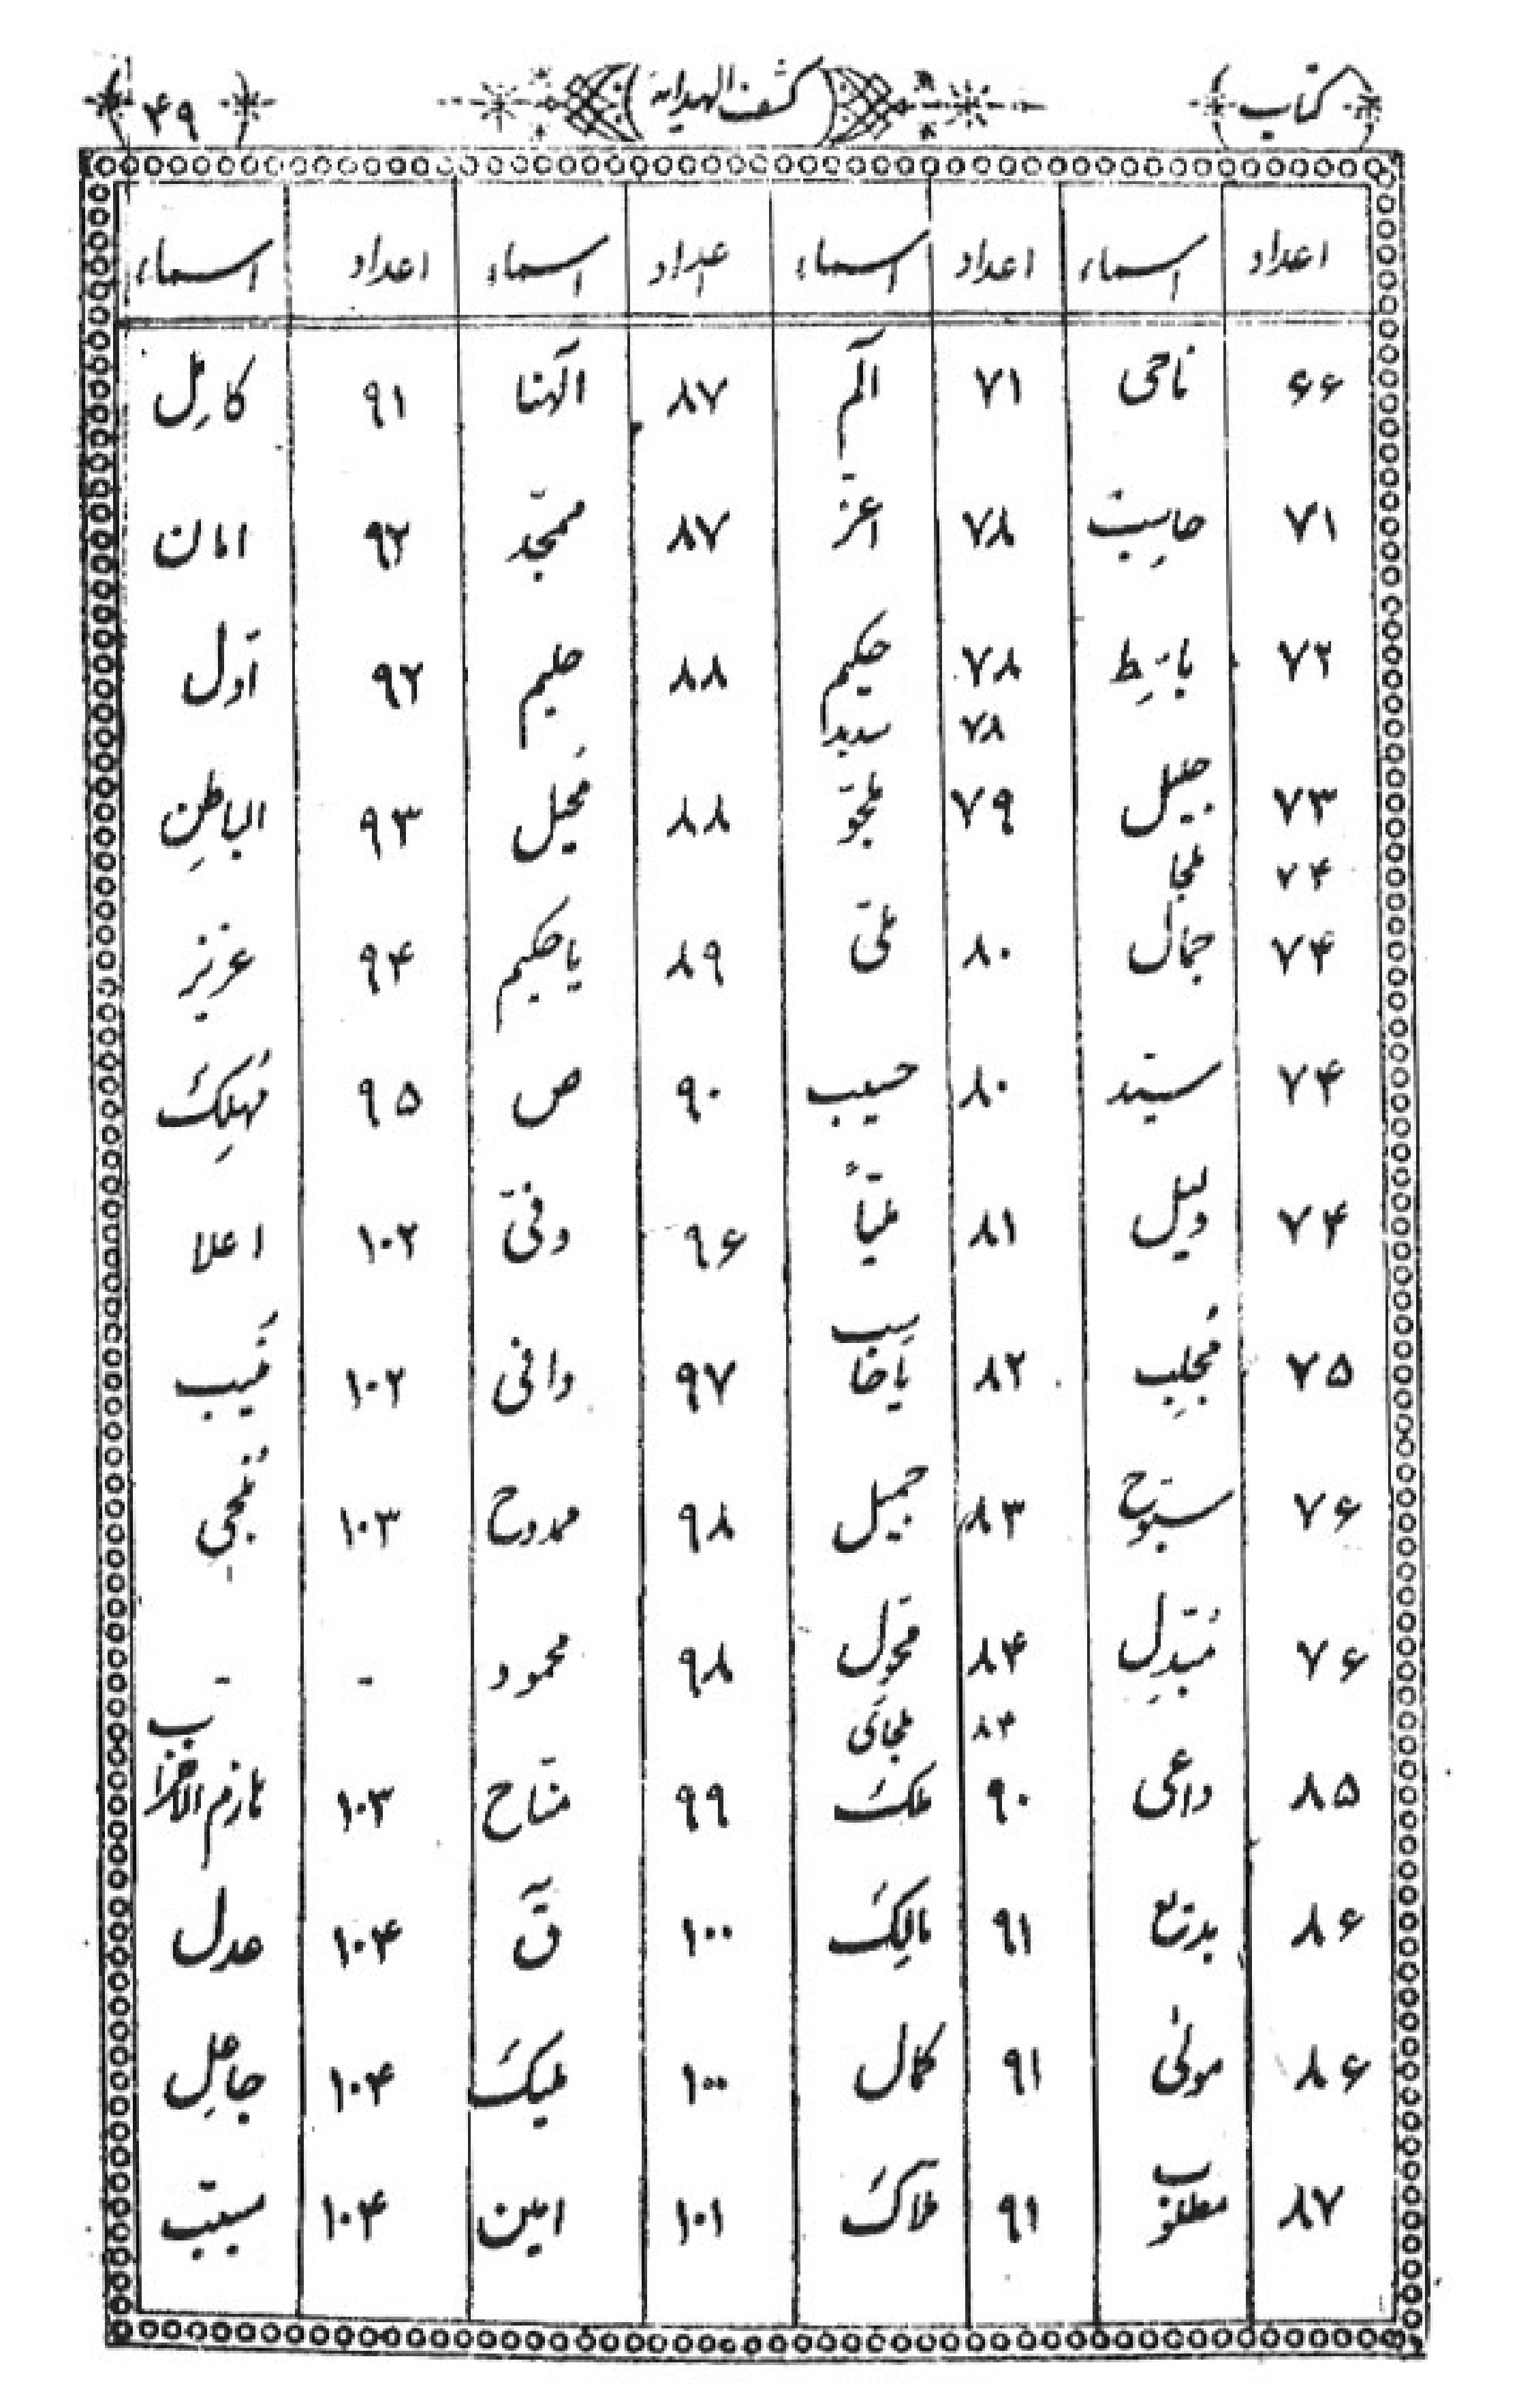 کتاب کشف الهدایه ۴۹
اعداد اسماء اعداد اسماء اعداد اسماء اعداد اسماء
۶۶ ناحی ۷۱ الٓم ۸۷ الٓهنا ۹۱ کامِل
۷۱ حاسِب ۷۸ اعزّ ۸۷ ممجّد ۹۲ امان
۷۲ باسِط ۷۸ حکیم ۸۸ حلیم ۹۲ اوّل
۷۸ سدید
۷۳ جلیل ۷۹ ملجوّ ۸۸ مُحیل ۹۳ الباطِن
۷۴ ملجا
۷۴ جمال ۸۰ ملیّ ۸۹ یاحکیم ۹۴ عزیز
۷۴ سیّد ۸۰ حسیب ۹۰ ص ۹۵ مُهلِکَ
۷۴ دلیل ۸۱ ملیّاً ۹۶ وفیّ ۱۰۲ اعلا
۷۵ مُجلِب ۸۲ یاحاسب ۹۷ وافی ۱۰۲ مُنیب
۷۶ سبّوح ۸۳ جمیل ۹۸ ممدوح ۱۰۳ مُنجی
۷۶ مُبّدِل ۸۴ محوّل ۹۸ محمود - -
۸۴ ملجائی
۸۵ داعی ۹۰ ملکَ ۹۹ منّاح ۱۰۳ هازم الاحزاب
۸۶ بدیع ۹۱ مالِکَ ۱۰۰ قٓ ۱۰۴ عدل
۸۶ مولٰی ۹۱ کمال ۱۰۰ ملیکَ ۱۰۴ جاعِل
۸۷ مطلوب ۹۱ ملاکَ ۱۰۱ امین ۱۰۴ مسبّب